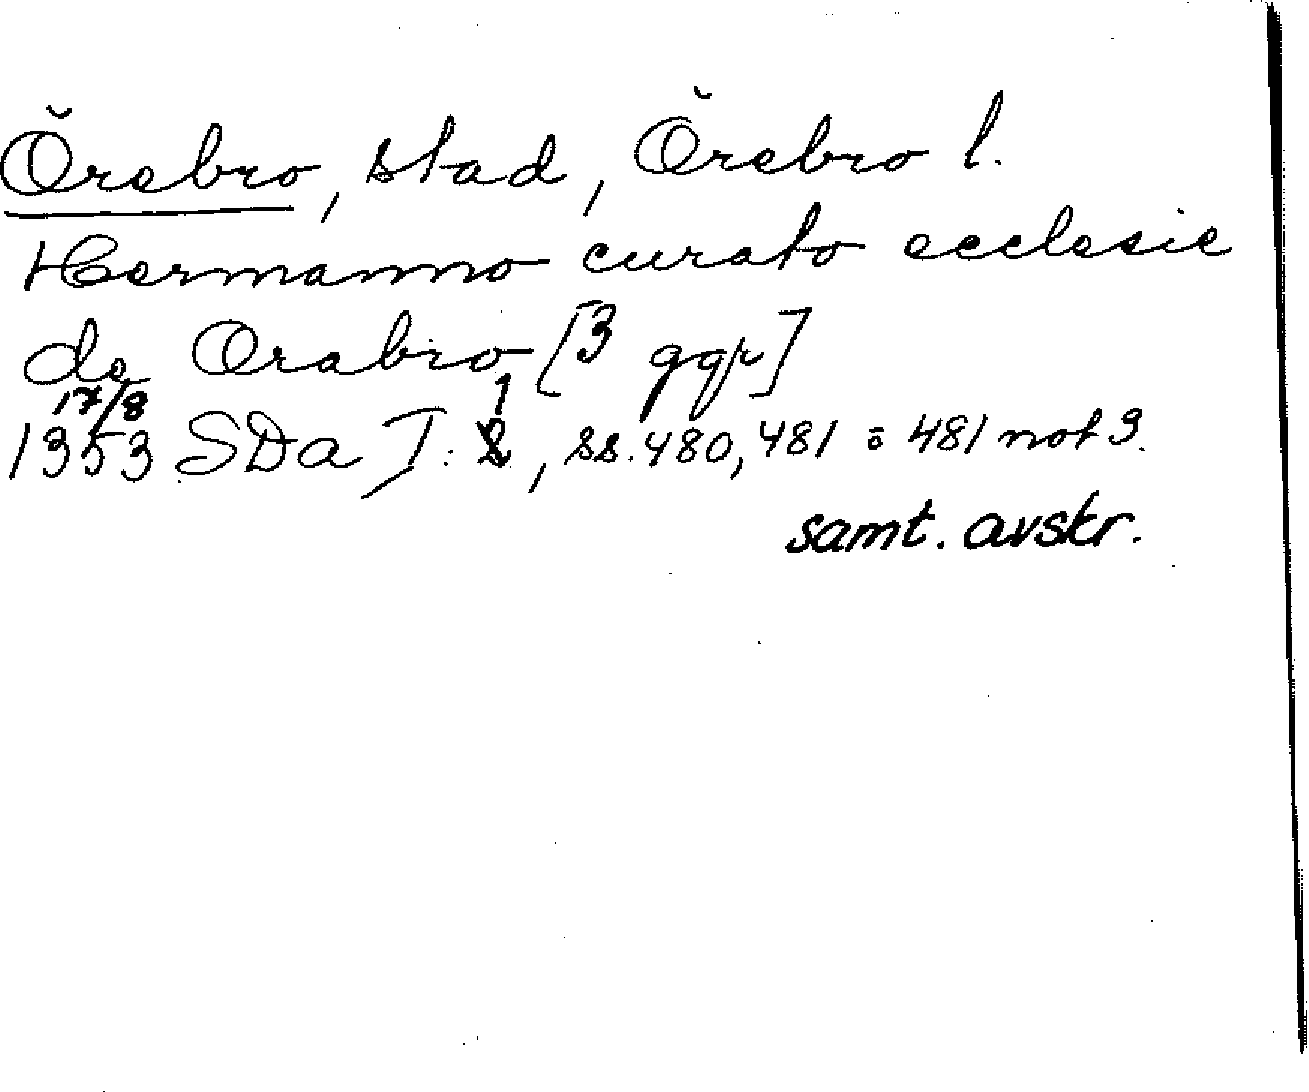 Örebro, stad, Örebro l.
Hermanno curato ecclesie
de Orabro [3 ggr]
17/8
1353 SDa I: 1, ss. 480, 481 o 481 not 3.
samt. avskr.